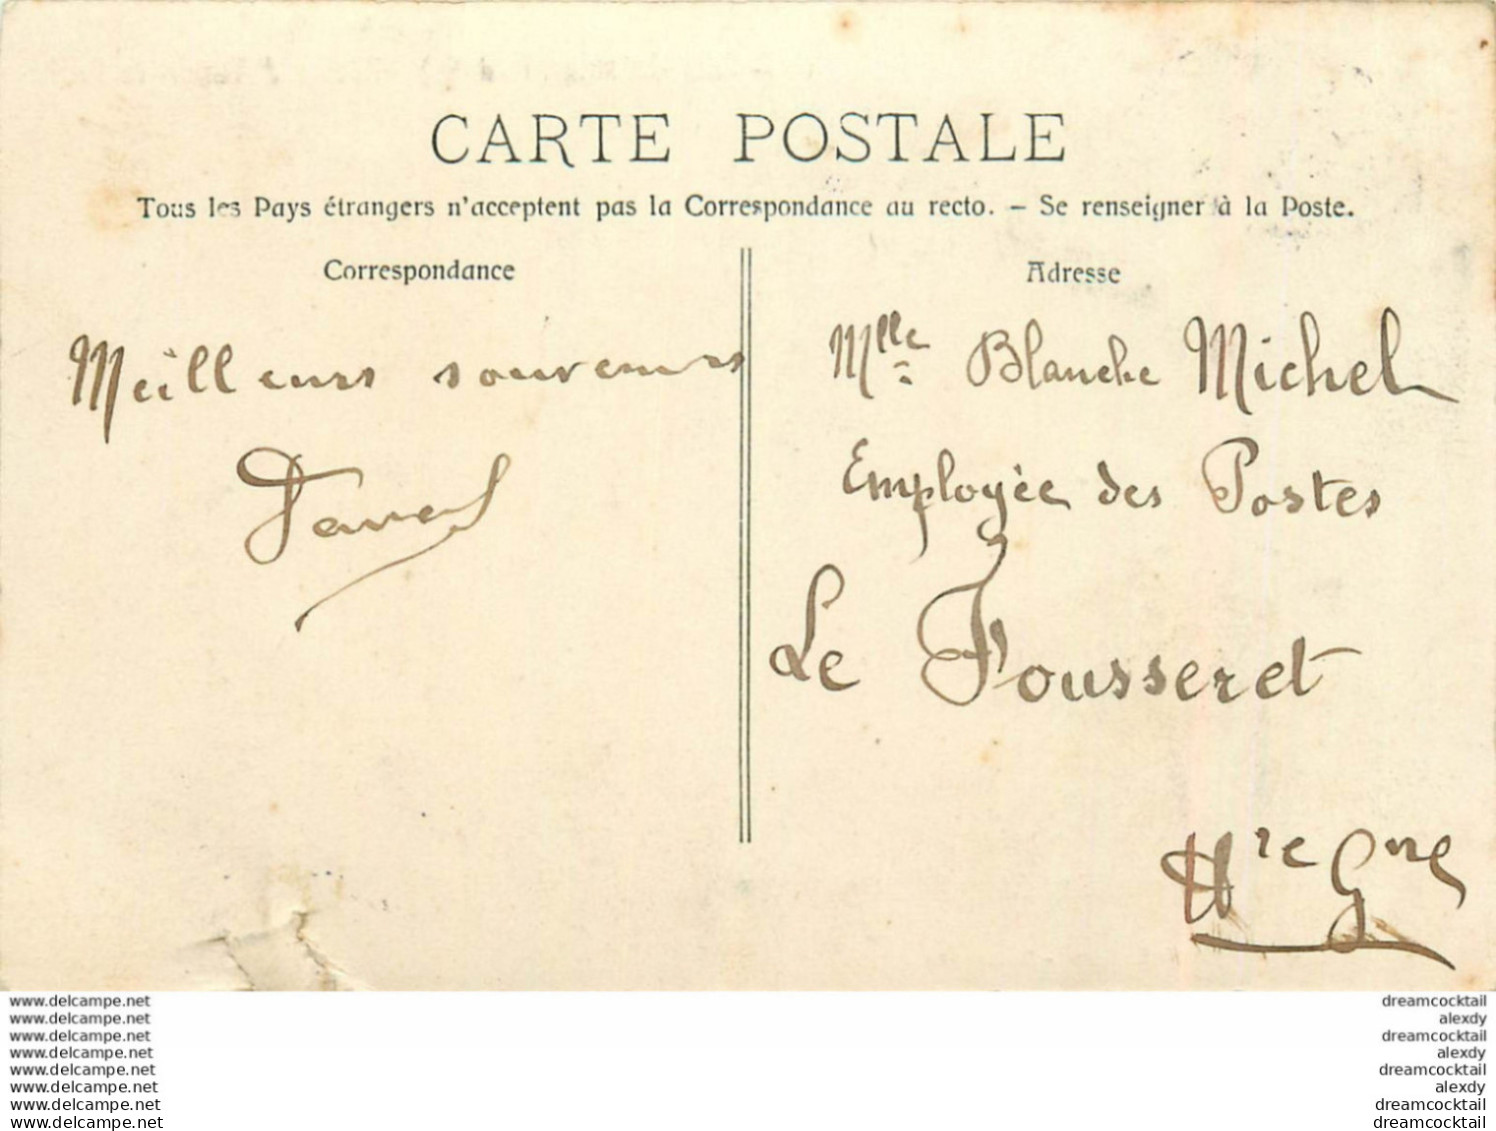 CARTE POSTALE
Tous les Pays étrangers n'acceptent pas la Correspondance au recto. — Se renseigner à la Poste.
Correspondance
Meilleurs souvenirs
Adresse
Mlle Blanche Michel
Employée des Postes
Le Fousseret
Hte Gne
www.delcampe.net
www.delcampe.net
www.delcampe.net
www.delcampe.net
www.delcampe.net
www.delcampe.net
www.delcampe.net
www.delcampe.net
dreamcocktail
alexdy
dreamcocktail
alexdy
dreamcocktail
alexdy
dreamcocktail
dreamcocktail